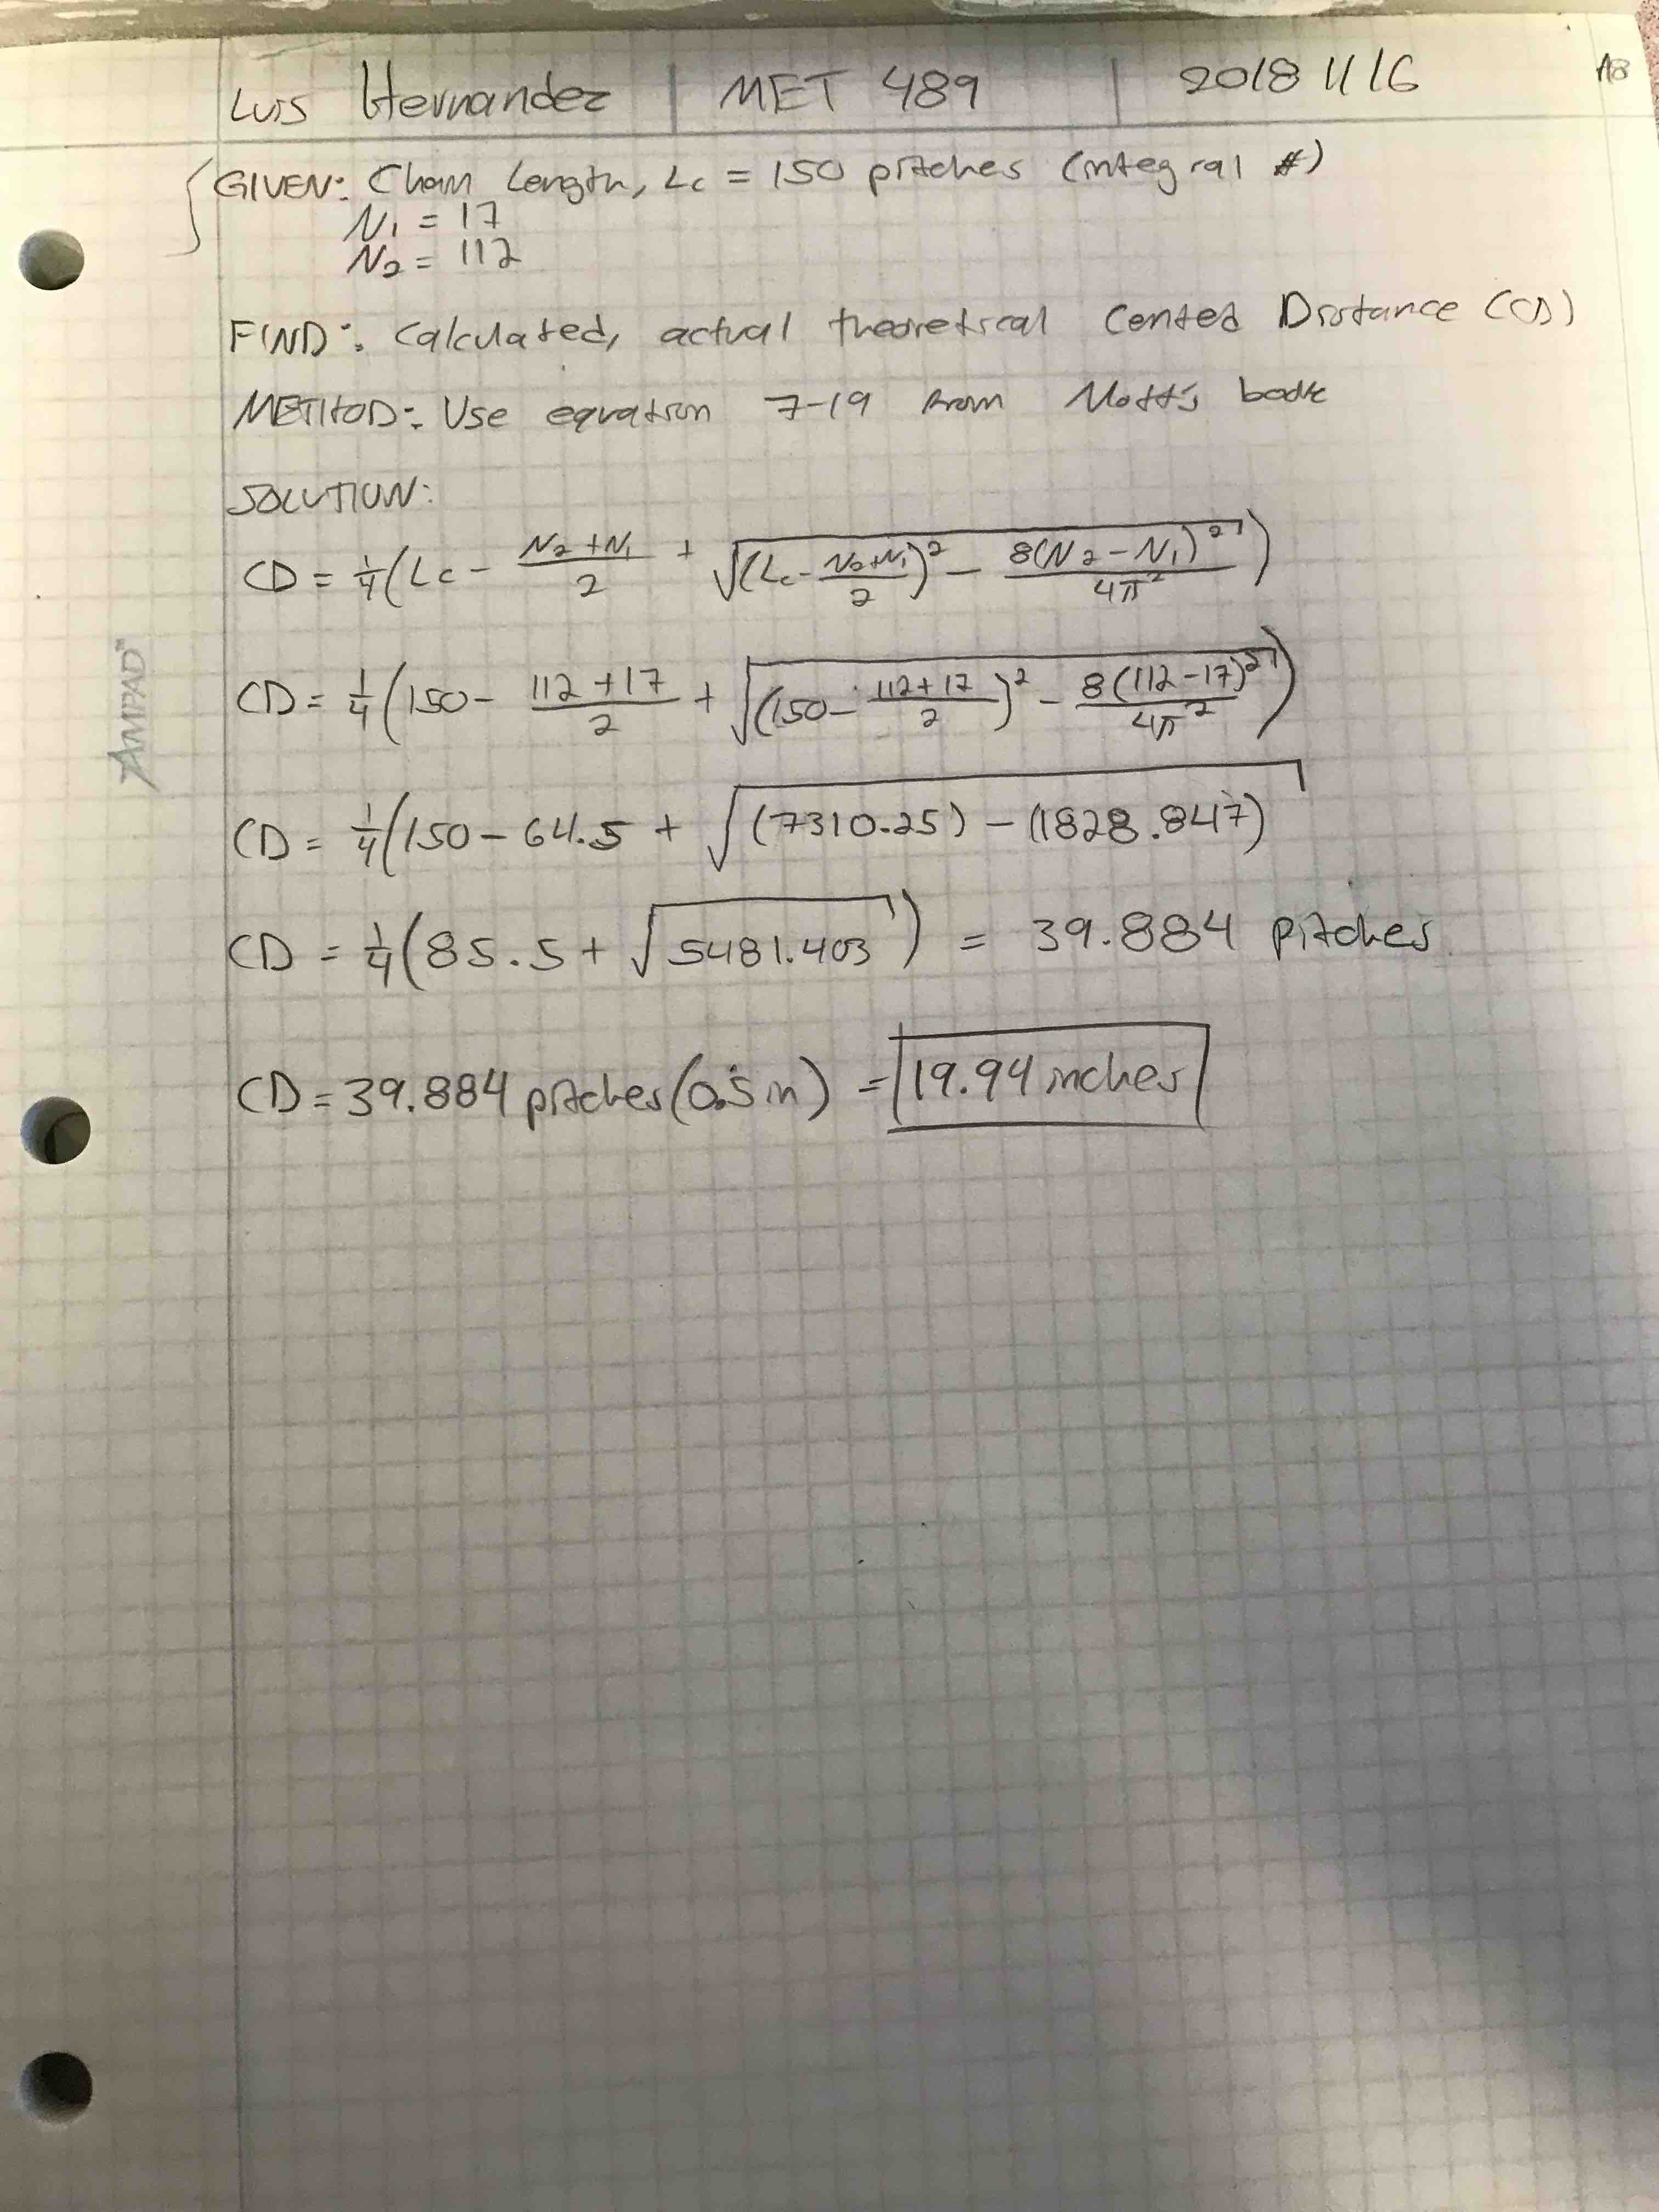 Luis Hernandez | MET 489 | 2018 11/16
A8
GIVEN: Chain Length, Lc = 150 pitches (integral #)
N1 = 17
N2 = 112
FIND: Calculated, actual theoretical Center Distance (CD)
METHOD: Use equation 7-19 from Mott's book
SOLUTION:
CD = 1/4 (Lc - (N2+N1)/2 + √((Lc - (N2+N1)/2)² - 8(N2-N1)²/4π²))
CD = 1/4 (150 - (112+17)/2 + √((150 - (112+17)/2)² - 8(112-17)²/4π²))
CD = 1/4 (150 - 64.5 + √((7310.25) - (1828.847))
CD = 1/4 (85.5 + √5481.403) = 39.884 pitches
CD = 39.884 pitches (0.5 in) = 19.94 inches
AMPAD™